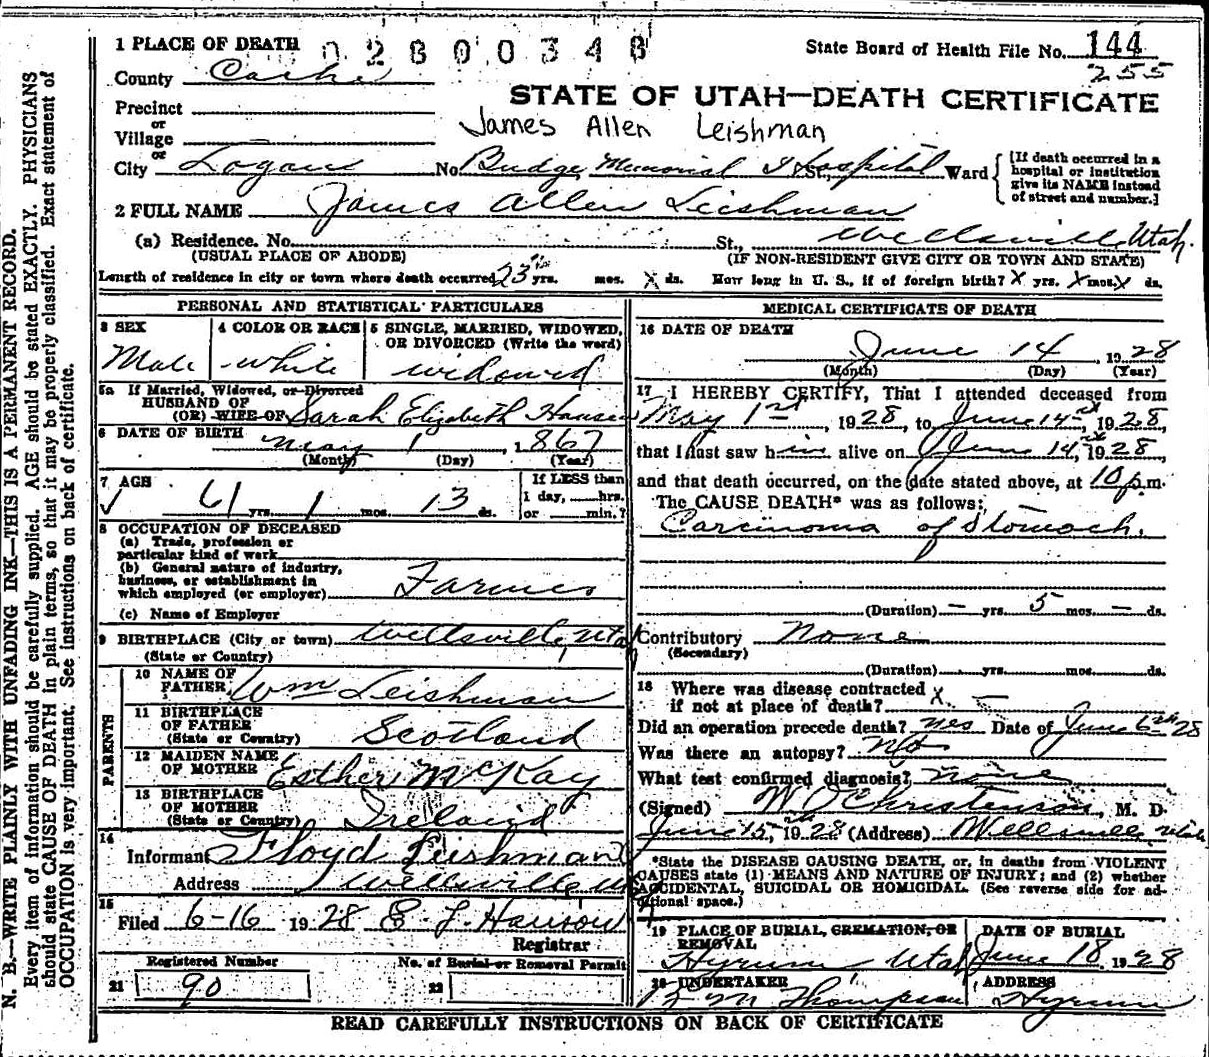 1 PLACE OF DEATH 02800348 State Board of Health File No. 144
County Cache 255
STATE OF UTAH—DEATH CERTIFICATE
Precinct
or
Village
James Allen Leishman
or
City Logan No. Budge Memorial Hospital St., Ward
[If death occurred in a
hospital or institution
give its NAME instead
of street and number.]
2 FULL NAME James Allen Leishman
(a) Residence. No. St., Wellsville Utah.
(USUAL PLACE OF ABODE) (IF NON-RESIDENT GIVE CITY OR TOWN AND STATE)
Length of residence in city or town where death occurred 23 yrs. mos. X ds. How long in U. S., if of foreign birth? X yrs. X mos. X ds.
PERSONAL AND STATISTICAL PARTICULARS
3 SEX 4 COLOR OR RACE 5 SINGLE, MARRIED, WIDOWED,
OR DIVORCED (Write the word)
Male white widowed
5a If Married, Widowed, or Divorced
HUSBAND OF
(OR) WIFE OF Sarah Elizabeth Hansen
6 DATE OF BIRTH May 1, 1867
(Month) (Day) (Year)
7 AGE If LESS than
1 day, hrs.
61 yrs. 1 mos. 13 ds. or min.?
8 OCCUPATION OF DECEASED
(a) Trade, profession or
particular kind of work
(b) General nature of industry,
business, or establishment in
which employed (or employer) Farmer
(c) Name of Employer
9 BIRTHPLACE (City or town) Wellsville, Utah
(State or Country)
PARENTS
10 NAME OF
FATHER Wm Leishman
11 BIRTHPLACE
OF FATHER
(State or Country) Scotland
12 MAIDEN NAME
OF MOTHER Esther McKay
13 BIRTHPLACE
OF MOTHER
(State or Country) Ireland
14
Informant Floyd Leishman
Address Wellsville
15
Filed 6-16 1928 E. L. Hanson
Registrar
Registered Number No. of Burial or Removal Permit
21 90 22
MEDICAL CERTIFICATE OF DEATH
16 DATE OF DEATH
June 14, 1928
(Month) (Day) (Year)
17 I HEREBY CERTIFY, That I attended deceased from
May 1st, 1928, to June 14, 1928,
that I last saw him alive on June 14, 1928
and that death occurred, on the date stated above, at 10 p.m.
The CAUSE DEATH* was as follows:
Carcinoma of Stomach.
(Duration) — yrs. 5 mos. — ds.
Contributory None
(Secondary)
(Duration) yrs. mos. ds.
18 Where was disease contracted
if not at place of death? X
Did an operation precede death? yes Date of June 6th-28
Was there an autopsy? No
What test confirmed diagnosis? none
(Signed) W. O Christenson, M. D.
June 15, 1928 (Address) Wellsville Utah
*State the DISEASE CAUSING DEATH, or, in deaths from VIOLENT
CAUSES state (1) MEANS AND NATURE OF INJURY; and (2) whether
ACCIDENTAL, SUICIDAL OR HOMICIDAL. (See reverse side for ad-
ditional space.)
19 PLACE OF BURIAL, CREMATION, OR DATE OF BURIAL
REMOVAL
Hyrum Utah June 18 1928
20 UNDERTAKER ADDRESS
Thompson Hyrum
READ CAREFULLY INSTRUCTIONS ON BACK OF CERTIFICATE
N. B.—WRITE PLAINLY WITH UNFADING INK—THIS IS A PERMANENT RECORD.
Every item of information should be carefully supplied. AGE should be stated EXACTLY. PHYSICIANS
should state CAUSE OF DEATH in plain terms, so that it may be properly classified. Exact statement of
OCCUPATION is very important. See instructions on back of certificate.